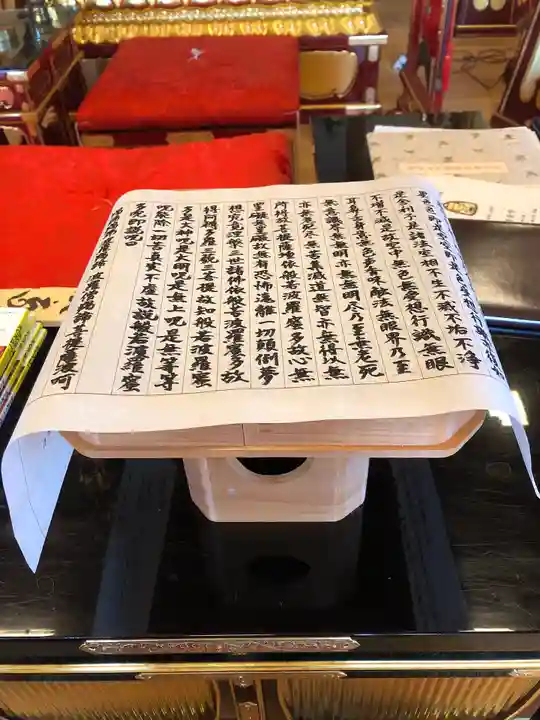 舎利子是諸法空相不生不滅不垢不淨
不増不減是故空中無色無受想行識無眼
耳鼻舌身意無色聲香味觸法無眼界乃至
無意識界無無明亦無無明盡乃至無老死
亦無老死盡無苦集滅道無智亦無得以無
所得故菩提薩埵依般若波羅蜜多故心無
罣礙無罣礙故無有恐怖遠離一切顛倒夢
想究竟涅槃三世諸佛依般若波羅蜜多故
得阿耨多羅三藐三菩提故知般若波羅蜜
多是大神呪是大明呪是無上呪是無等等
呪能除一切苦真実不虚故説般若波羅蜜
多呪即説呪曰